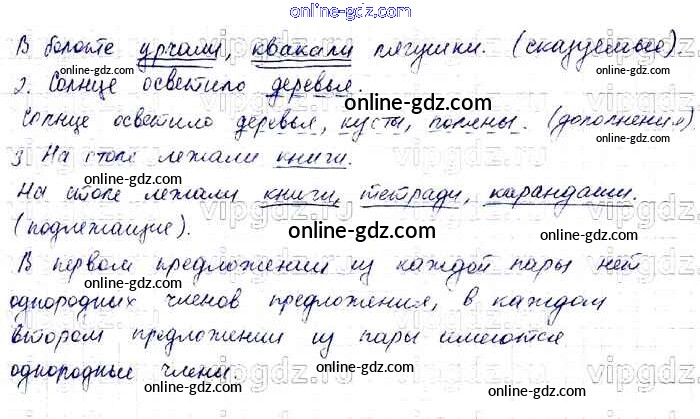 online-gdz.com
В болоте урчали, квакали лягушки. (сказуемые).
online-gdz.com
2. Солнце осветило деревья.
online-gdz.com
Солнце осветило деревья, кусты, поляны. (дополнения)
online-gdz.com
3. На столе лежали книги.
online-gdz.com
На столе лежали книги, тетради, карандаши.
vipgdz.ru
(подлежащие).
online-gdz.com
В первом предложении из каждой пары нет
online-gdz.com
однородных членов предложения, в каждом
online-gdz.com
втором предложении из пары имеются
vipgdz.ru
online-gdz.com
однородные члены.
online-gdz.com